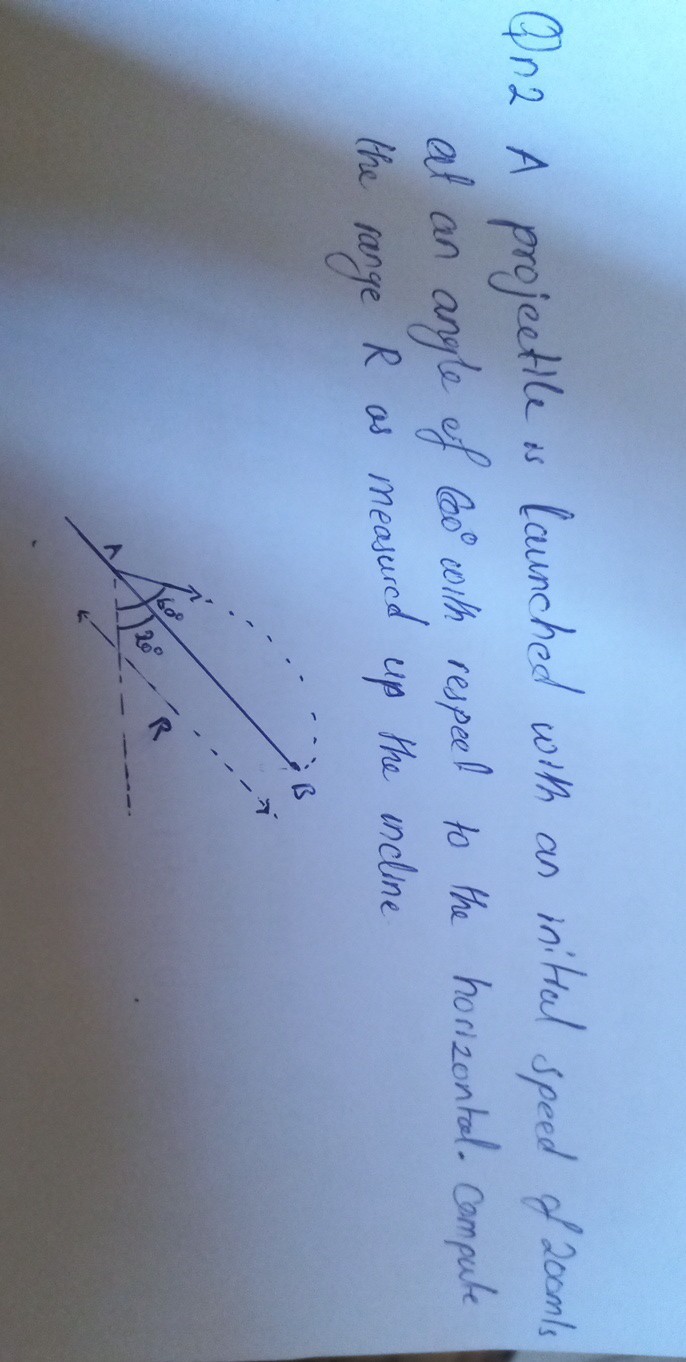 Qn2 A projectile is launched with an initial speed of 200m/s
at an angle of 60° with respect to the horizontal. Compute
the range R as measured up the incline
B
A
60°
20°
R